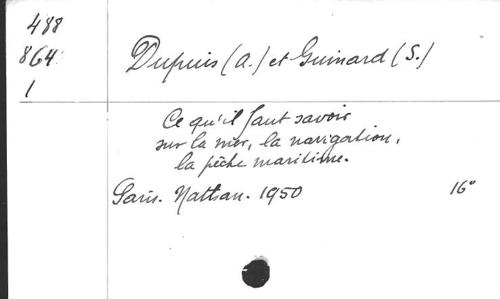 488
864
1
Dupuis (A.) et Guinard (S.)
Ce qu'il faut savoir
sur la mer, la navigation,
la pêche maritime.
Paris. Nathan. 1950 16°